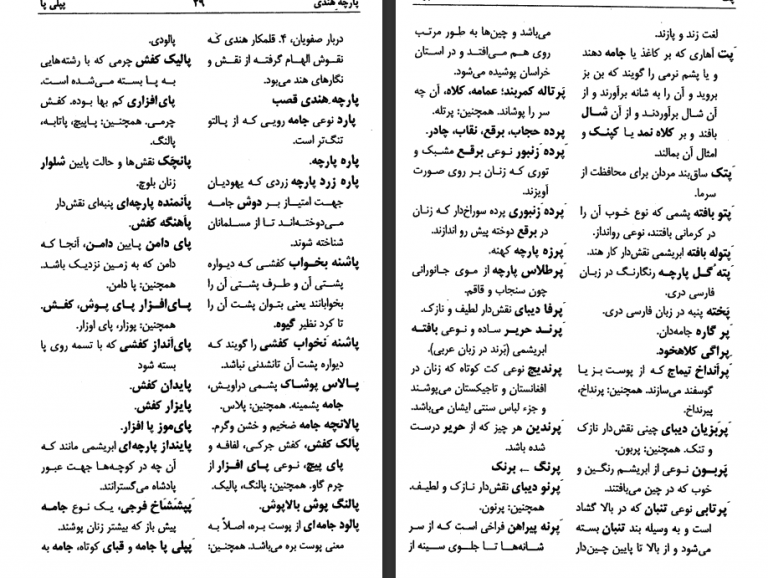 پارچه هندی ۲۹ پپلی پا
دربار صفویان، ۴. قلمکار هندی که
نقوش الهام گرفته از نقش و
نگارهای هند می‌بود.
پارچه هندی قصب
پارد نوعی جامه رویی که از پالتو
تنگ‌تر است.
پاره پارچه.
پاره زرد پارچه زردی که یهودیان
جهت امتیاز بر دوش جامه
می‌دوخته‌اند تا از مسلمانان
شناخته شوند.
پاشنه بخواب کفشی که دیواره
پشتی آن و طرف پشتی آن را
بخوابانند یعنی بتوان پشت آن را
تا کرد نظیر گیوه.
پاشنه نخواب کفشی را گویند که
دیواره پشت آن تانشدنی نباشد.
پالاس پوشاک پشمی دراویش،
جامه پشمینه. همچنین: پلاس.
پالانچه جامه ضخیم و خشن وگرم.
پالک کفش، کفش جرکی، لفافه و
پای پیچ، نوعی پای افزار از
چرم گاو. همچنین: پالنگ، پالیک.
پالنگ پوش بالاپوش.
پالود جامه‌ای از پوست بره، اصلاً به
معنی پوست بره می‌باشد. همچنین:
پالودی.
پالیک کفش چرمی که با رشته‌هایی
به پا بسته می‌شده است.
پای‌افزاری کم بها بوده. کفش
چرمی. همچنین: پاپیچ، پاتابه،
پالنگ.
پانچک نقش‌ها و حالت پایین شلوار
زنان بلوچ.
پانمنده پارچه‌ای پنبه‌ای نقش‌دار
پاهنگه کفش.
پای دامن پایین دامن، آنجا که
دامن که به زمین نزدیک باشد.
همچنین: پا دامن.
پای‌افزار پای پوش، کفش.
همچنین: پوزار، پای اوزار.
پای‌انداز کفشی که با تسمه روی پا
بسته شود
پایدان کفش.
پایزار کفش.
پای‌موز پا افزار.
پاینداز پارچه‌ای ابریشمی مانند که
آن چه در کوچه‌ها جهت عبور
پادشاه می‌گسترانند.
پپشتاخ فرجی، یک نوع جامه
پیش باز که بیشتر زنان پوشند.
پپلی پا جامه و قبای کوتاه، جامه به
پت
لغت زند و پازند.
پت آهاری که بر کاغذ یا جامه دهند
و یا پشم نرمی را گویند که بن بز
بروید و آن را به شانه برآورند و از
آن شال برآوردند و از آن شال
بافند و بر کلاه نمد یا کپنک و
امثال آن بمالند.
پتک ساق‌بند مردان برای محافظت از
سرما.
پتو بافته پشمی که نوع خوب آن را
در کرمانی بافتند، نوعی روانداز.
پتوله بافته ابریشمی نقش‌دار کار هند.
پته گل پارچه رنگارنگ در زبان
فارسی دری.
پخته پنبه در زبان فارسی دری.
پر گاره جامه‌دان.
پراگی کلاهخود.
پرانداخ تیماج که از پوست بز یا
گوسفند می‌سازند. همچنین: پرنداخ،
پیرنداخ.
پربزیان دیبای چینی نقش‌دار نازک
و تنک. همچنین: پربون.
پربون نوعی از ابریشم رنگین و
خوب که در چین می‌بافتند.
پرتابی نوعی تنبان که در بالا گشاد
است و به وسیله بند تنبان بسته
می‌شود و از بالا تا پایین چین‌دار
می‌باشد و چین‌ها به طور مرتب
روی هم می‌افتد و در استان
خراسان پوشیده می‌شود.
پرتاله کمربند؛ عمامه، کلاه، آن چه
سر را پوشاند. همچنین: پرتله.
پرده حجاب، برقع، نقاب، چادر.
پرده زنبور نوعی برقع مشبک و
توری که زنان بر روی صورت
آویزند.
پرده زنبوری پرده سوراخ‌دار که زنان
در برقع دوخته پیش رو اندازند.
پرزه پارچه کهنه.
پرطلاس پارچه از موی جانورانی
چون سنجاب و قاقم.
پرفا دیبای نقش‌دار لطیف و نازک.
پرند حریر ساده و نوعی بافته
ابریشمی (بَرند در زبان عربی).
پرندیچ نوعی کت کوتاه که زنان در
افغانستان و تاجیکستان می‌پوشند
و جزء لباس سنتی ایشان می‌باشد.
پرندین هر چیز که از حریر درست
شده باشد.
پرنگ ← برنک
پرنو دیبای نقش‌دار نازک و لطیف.
همچنین: پرنون.
پرنه پیراهن فراخی است که از سر
شانه‌ها تا جلوی سینه از